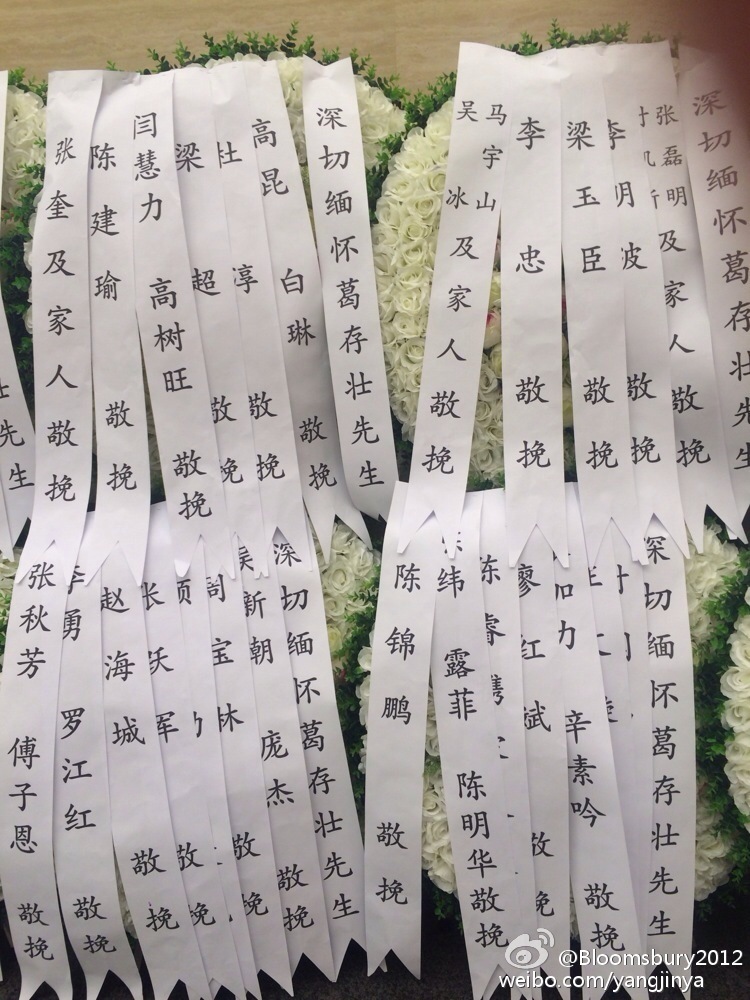 深切缅怀葛存壮先生
高昆 白琳 敬挽
杜淳 敬挽
梁超 敬挽
闫慧力 高树旺 敬挽
陈建瑜 敬挽
张奎及家人敬挽
先生
深切缅怀葛存壮先生
张磊明
及家人敬挽
李明波 敬挽
梁玉臣 敬挽
李忠 敬挽
马宇山
吴冰
及家人敬挽
深切缅怀葛存壮先生
新朝 庞杰 敬挽
周宝林 敬挽
敬挽
张跃军 敬挽
赵海城 敬挽
李勇 罗江红 敬挽
张秋芳 傅子恩 敬挽
深切缅怀葛存壮先生
加力 辛素吟 敬挽
廖红斌 敬挽
陈睿
纬 露菲 陈明华敬挽
陈锦鹏 敬挽
@Bloomsbury2012
weibo.com/yangjinya